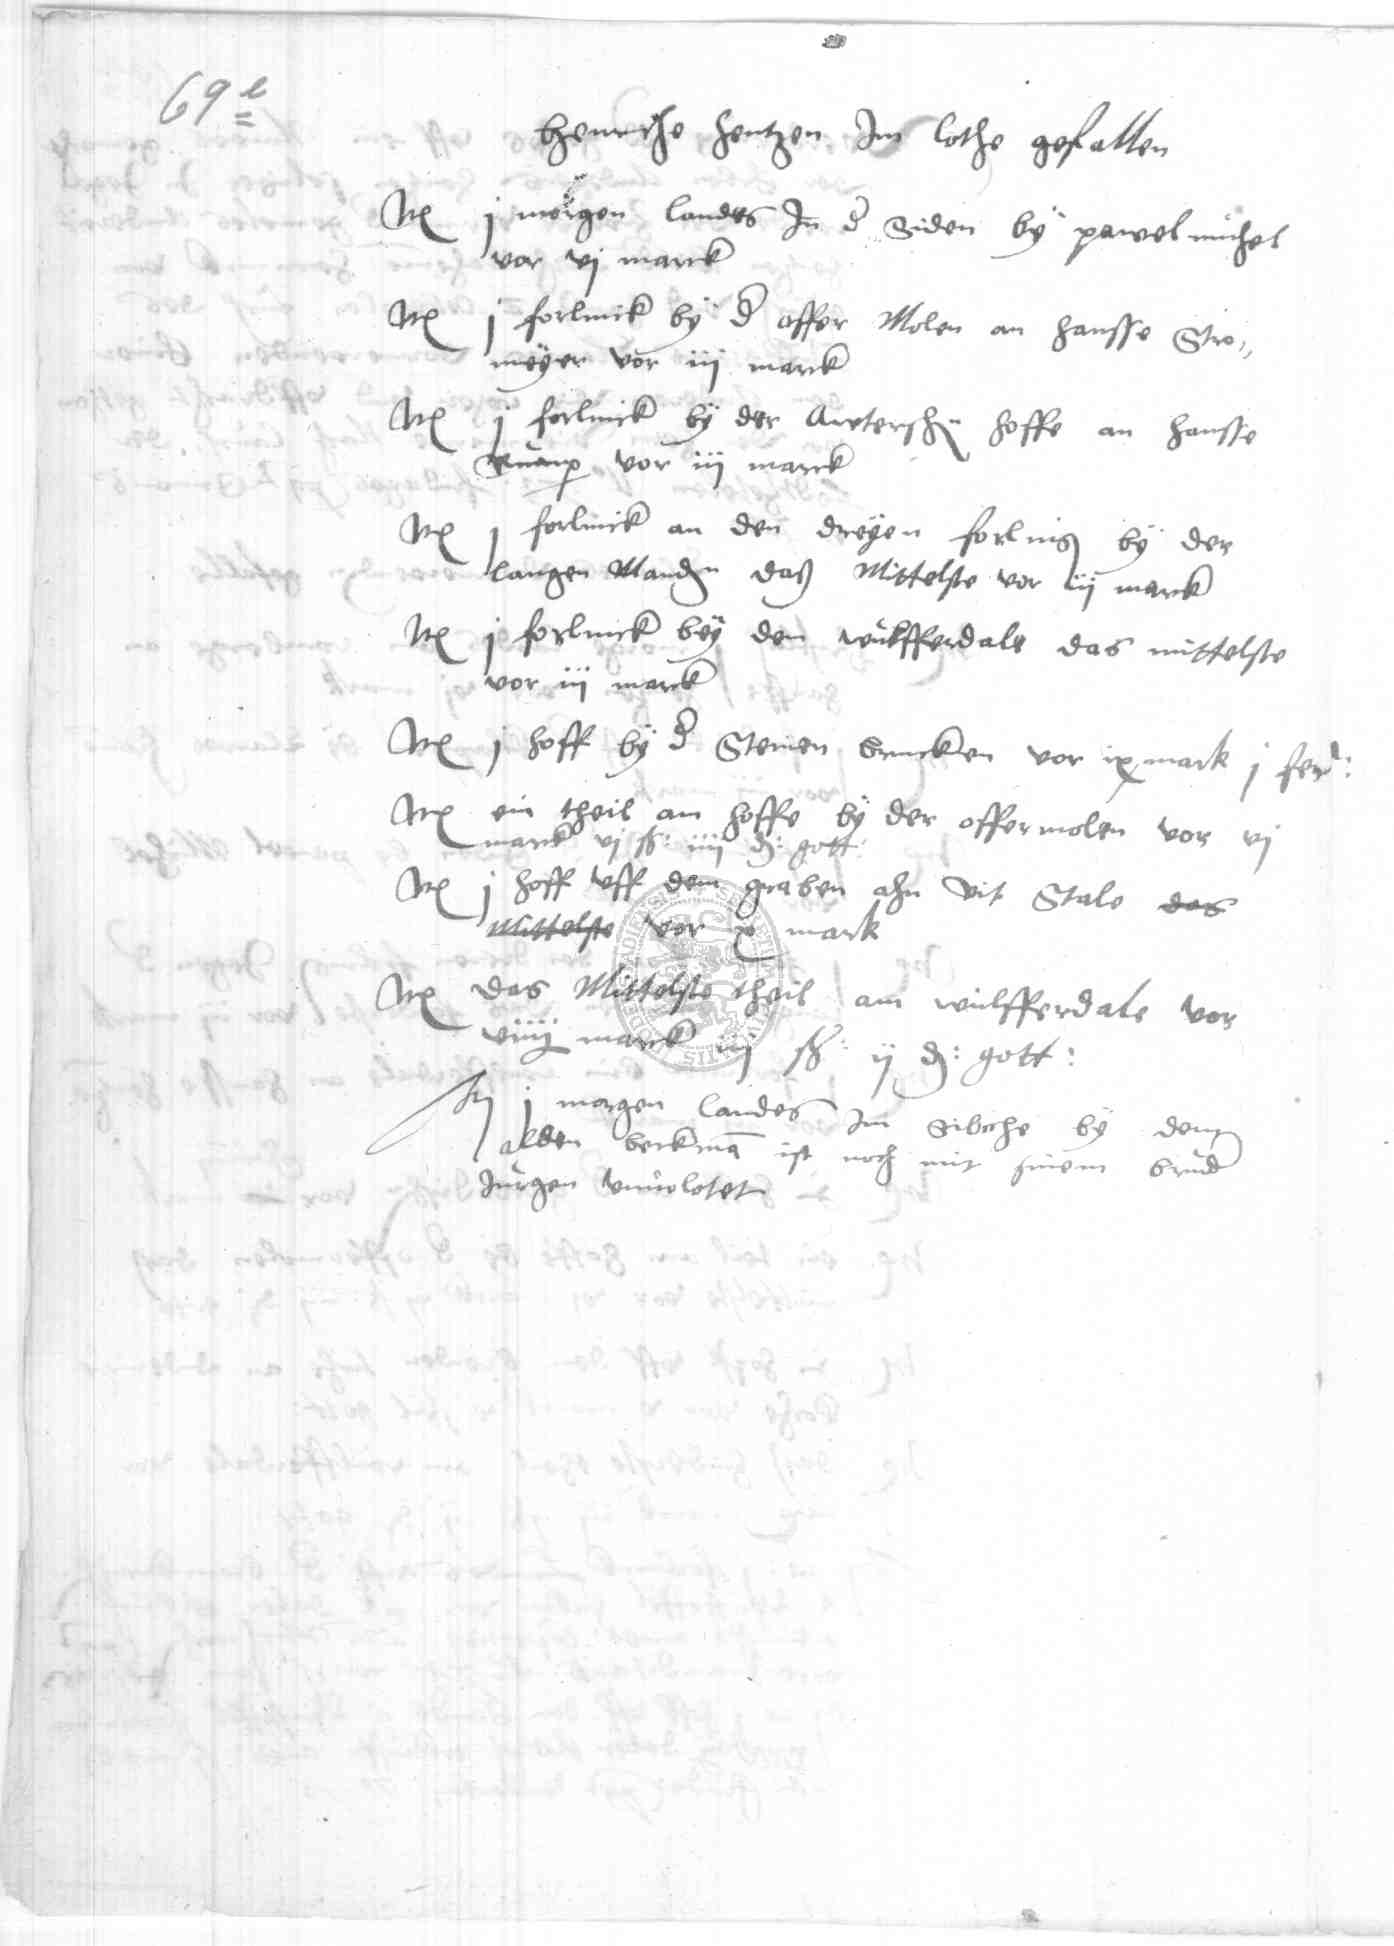 69e
henriche hentzen Im lothe gefallen
Itē j morgen landes In d' Siden by pawel michel
vor vj marck
Itē j forlinck by d' offer Molen an hansse Stro,,
meyer vor iij marck
Itē j forlinck by der hoffe an hansse
vor iij marck
Itē j forlinck an den dreyen forling by der
langen Wanden daß Mittelste vor iij marck
Itē j forlinck bey den wulfferdale das mittelste
vor iij marck
Itē j hoff by d' Steinen brucken vor ix mark j fer:
Itē ein theil am hoffe by der offermolen vor vj
marck vj ß: iiij d: gott:
Itē j hoff vff dem graben ahn Vit Stale das
Mittelste vor x mark
Itē das Mittelste theil am wulfferdale vor
viiij marck iij ß: ij d: gott:
j morgen landes im Sibeche by dem
alden berkmā ist noch mit sinem brud'
Jurgen vnuolotet